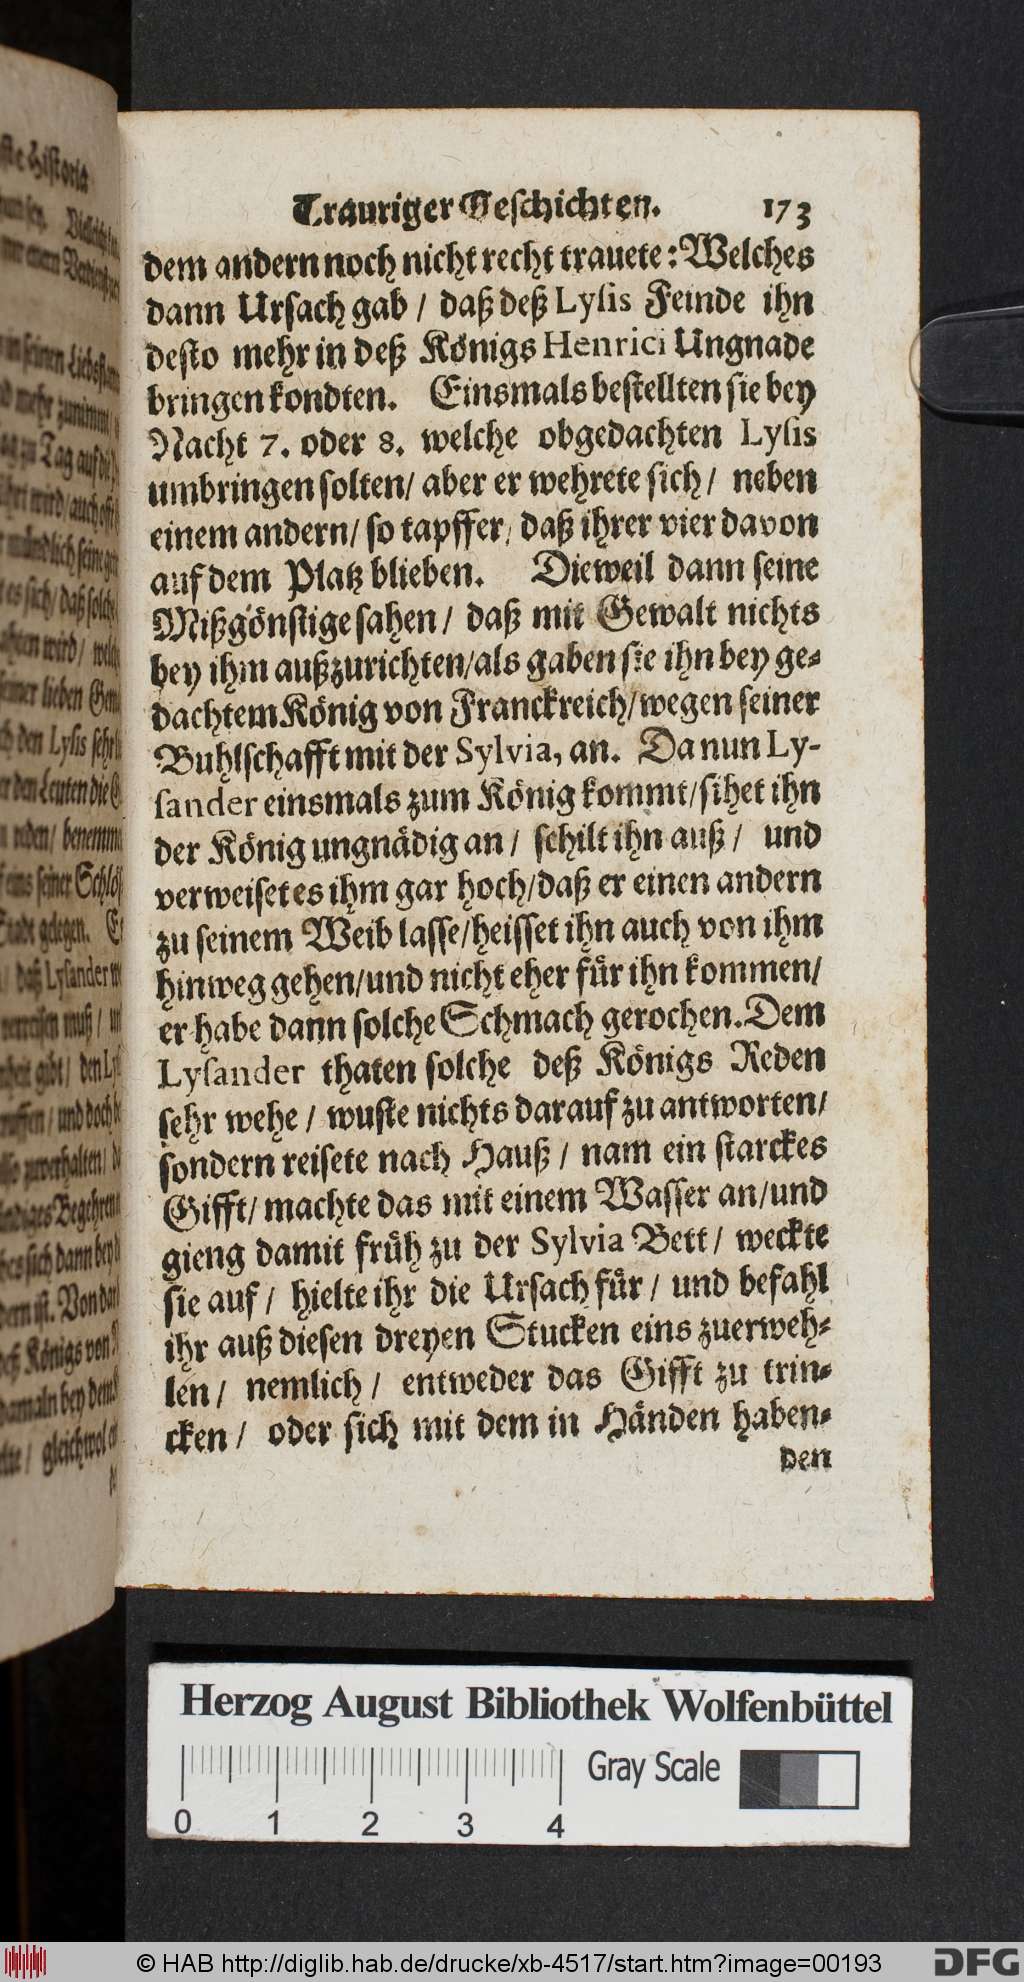 Trauriger Geſchichten. 173
dem andern noch nicht recht trauete: Welches
dann Urſach gab / daß deß Lyſis Feinde ihn
deſto mehr in deß Königs Henrici Ungnade
bringen kondten. Einsmals beſtellten ſie bey
Nacht 7. oder 8. welche obgedachten Lyſis
umbringen ſolten/ aber er wehrete ſich / neben
einem andern/ ſo tapffer, daß ihrer vier davon
auf dem Platz blieben. Dieweil dann ſeine
Mißgönſtige ſahen / daß mit Gewalt nichts
bey ihm außzurichten/als gaben ſie ihn bey ge-
dachtem König von Franckreich/wegen ſeiner
Buhlſchafft mit der Sylvia, an. Da nun Ly-
ſander einsmals zum König kommt/ſihet ihn
der König ungnädig an / ſchilt ihn auß / und
verweiſet es ihm gar hoch/daß er einen andern
zu ſeinem Weib laſſe/heiſſet ihn auch von ihm
hinweg gehen/und nicht eher fuͤr ihn kommen/
er habe dann ſolche Schmach gerochen. Dem
Lyſander thaten ſolche deß Königs Reden
ſehr wehe / wuſte nichts darauf zu antworten/
ſondern reiſete nach Hauß / nam ein ſtarckes
Gifft/ machte das mit einem Waſſer an/und
gieng damit fruͤh zu der Sylvia Bett/ weckte
ſie auf / hielte ihr die Urſach fuͤr / und befahl
ihr auß dieſen dreyen Stucken eins zuerweh-
len / nemlich / entweder das Gifft zu trin-
cken / oder ſich mit dem in Händen haben-
den
Herzog August Bibliothek Wolfenbüttel
Gray Scale
0 1 2 3 4
© HAB http://diglib.hab.de/drucke/xb-4517/start.htm?image=00193
DFG